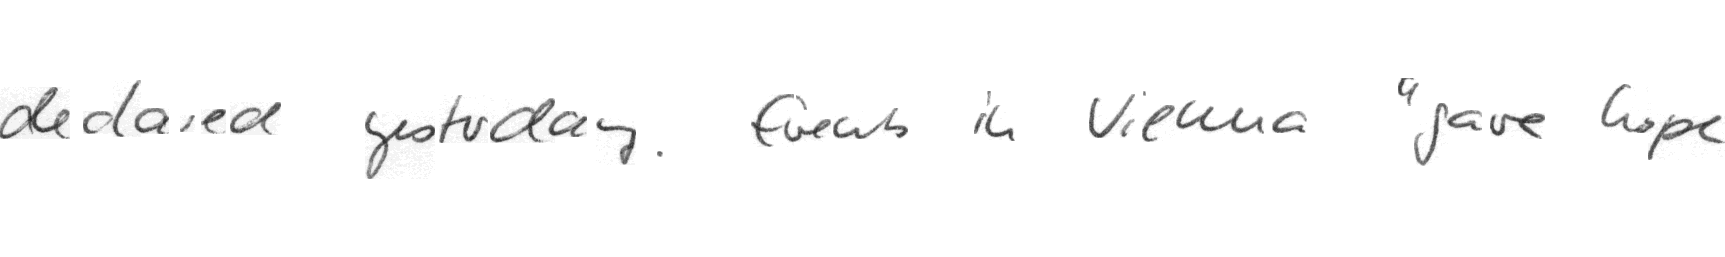 declared yesterday. Events in Vienna "gave hope